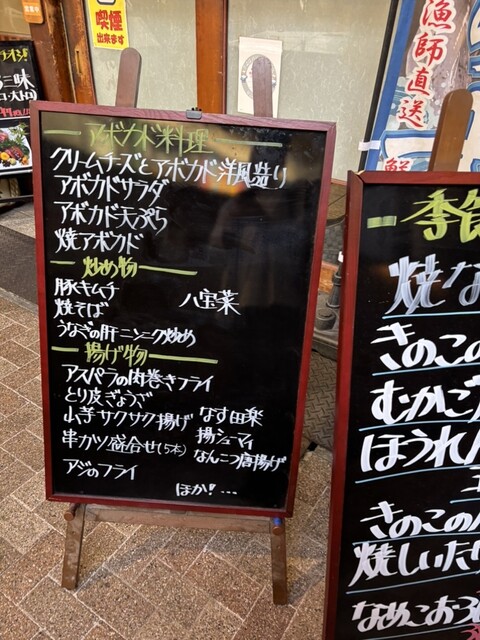 喫煙
出来ます
漁師直送
アボカド料理
クリームチーズとアボカド洋風造り
アボカドサラダ
アボカド天ぷら
焼アボカド
炒め物
豚キムチ
八宝菜
焼そば
うなぎの肝ニンニク炒め
揚げ物
アスパラの肉巻きフライ
とり皮ぎょうざ
山芋サクサク揚げ
なす田楽
串カツ盛合せ(5本)
揚シューマイ
なんこつ唐揚げ
アジのフライ
ほか!…
焼な
きのこの
むかご
ほうれん
きのこの
焼しいた
なめこおろ